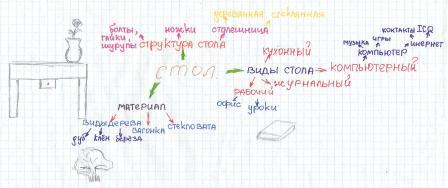 деревянная стеклянная
болты, ножки столешница
гайки
шурупы структура стола
контакты ICQ
музыка игры интернет
компьютер
кухонный
стол виды стола компьютерный
журнальный
рабочий
офис уроки
материал
виды дерева вагонка стекловата
дуб клён берёза